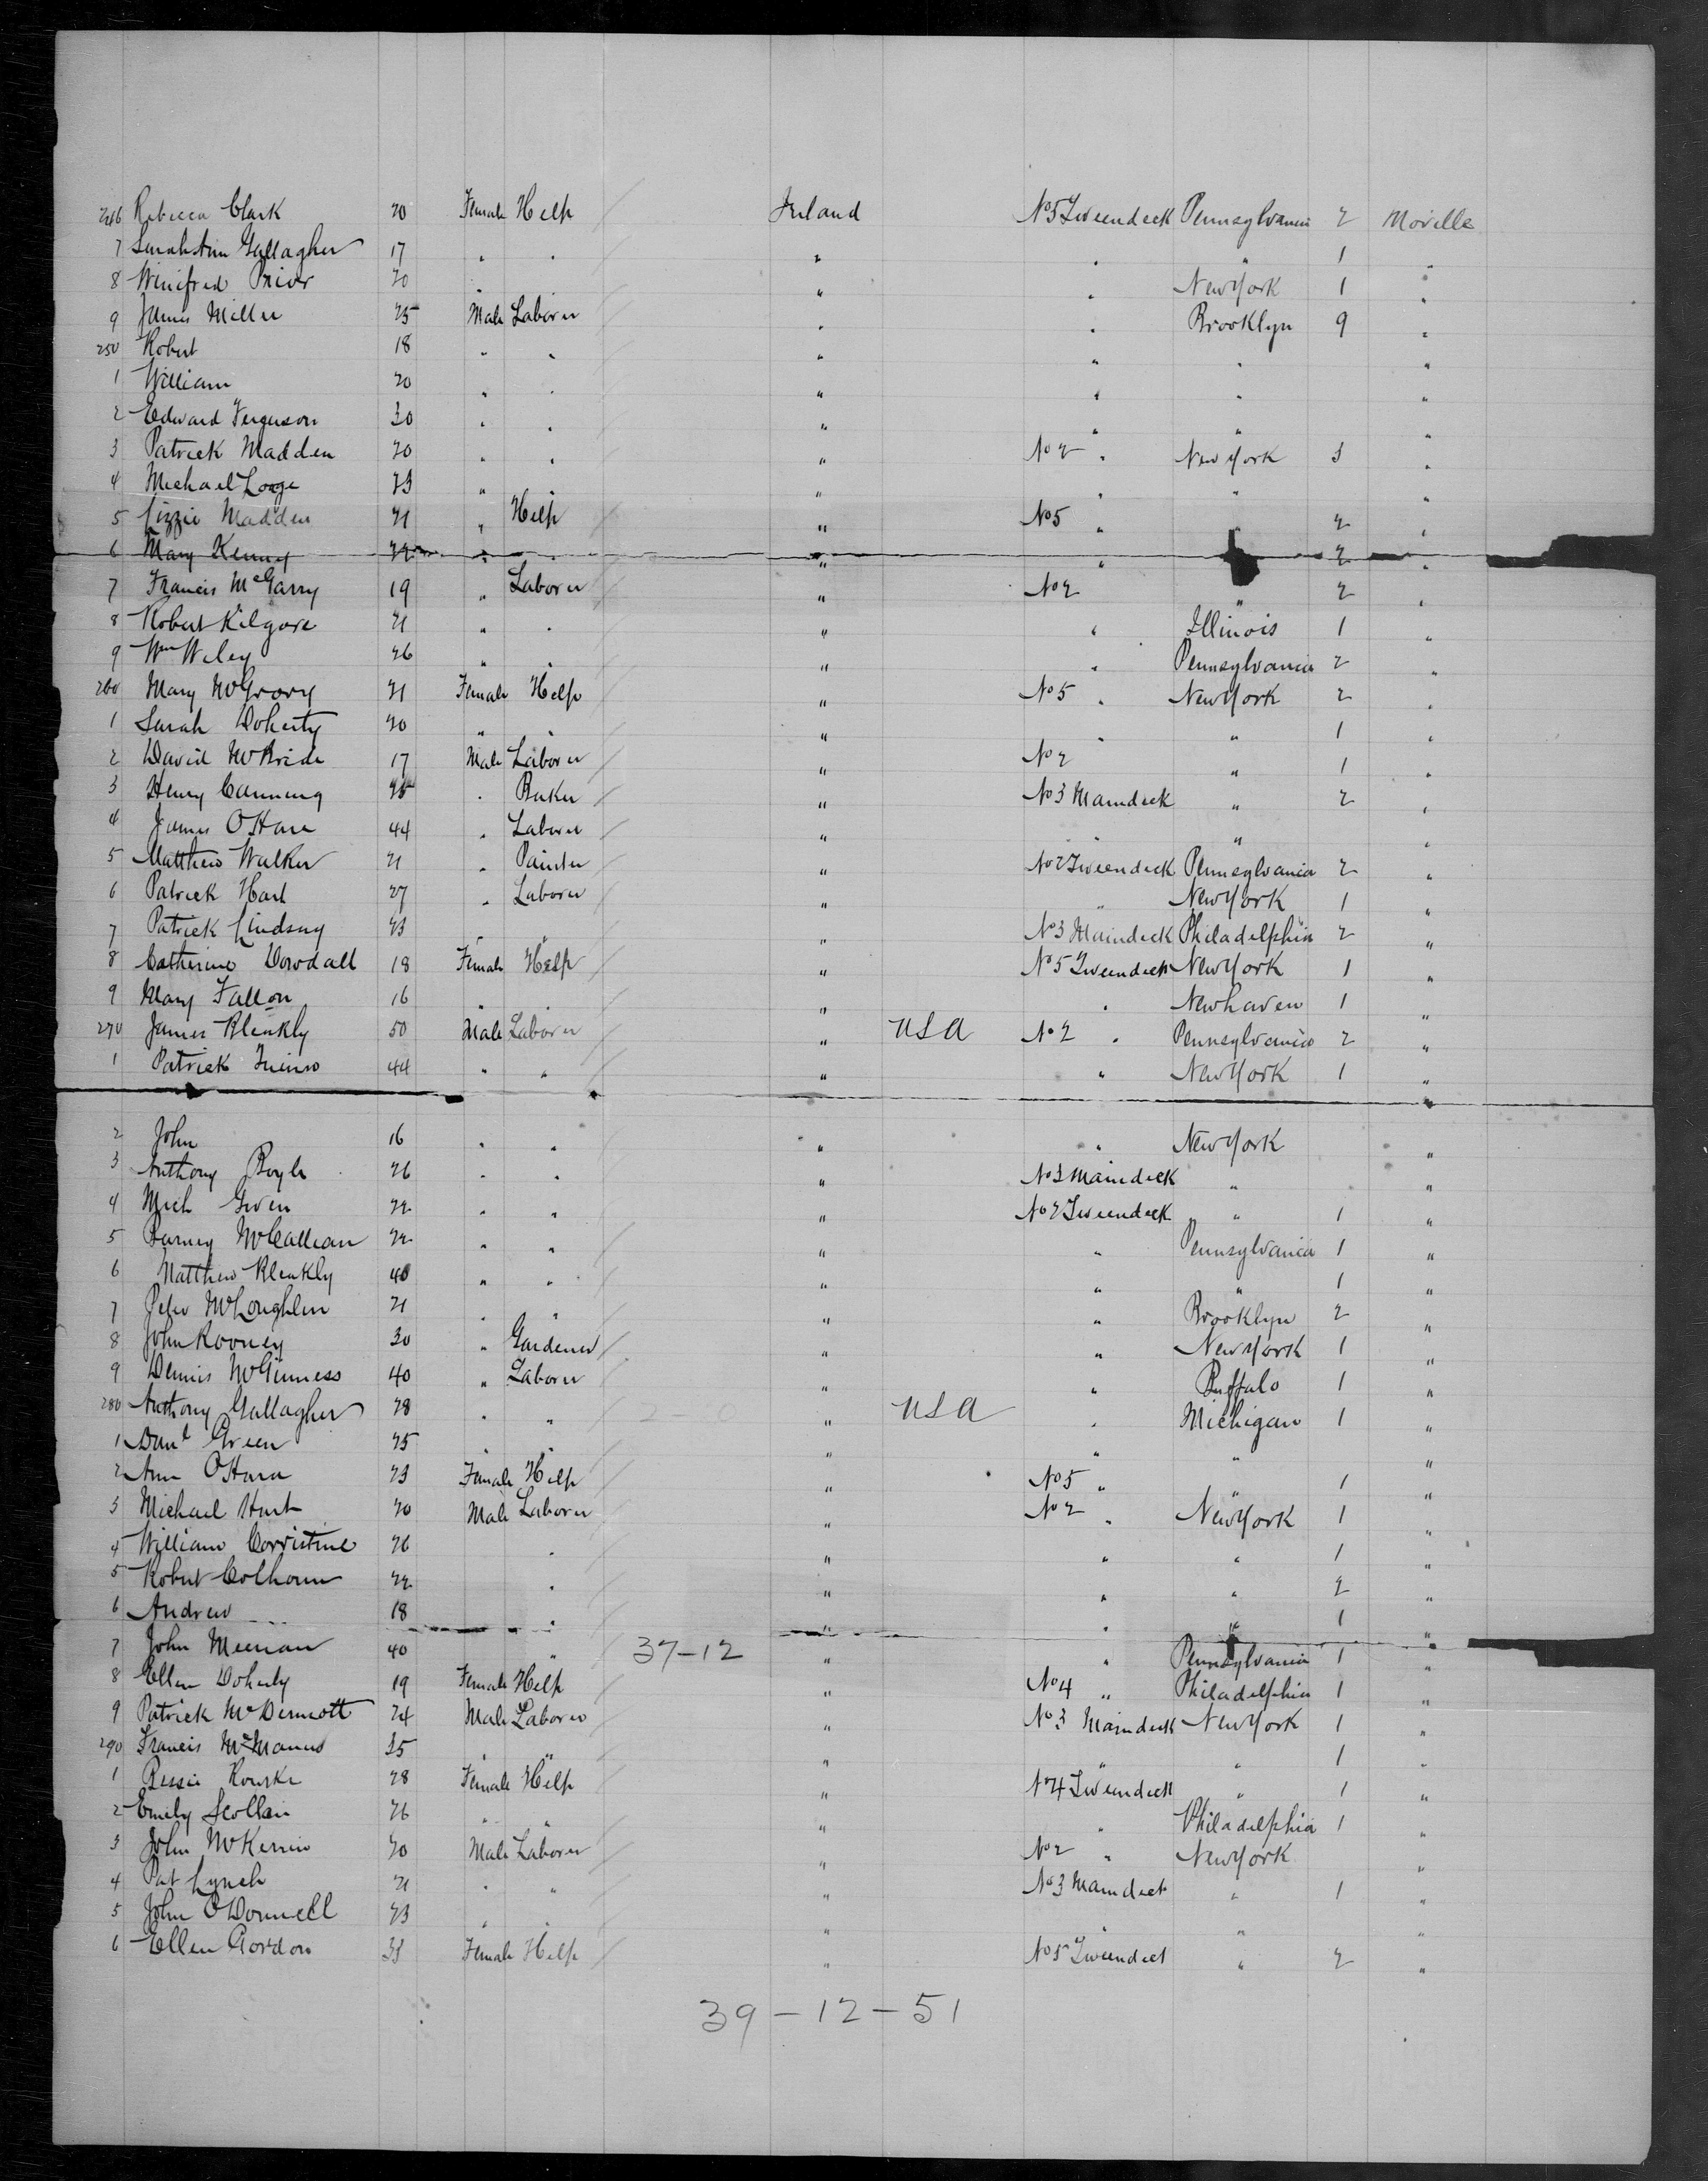 246 Rebecca Clark 20 Female Help / Ireland No5 Tweendeck Pennsylvania 2 Moville
7 Sarah Ann Gallagher 17 " " / " " " 1 "
8 Winifred Prior 20 " / " " New York 1 "
9 James Miller 25 Male Laborer / " " Brooklyn 9 "
250 Robert 18 " " / " " " "
1 William 20 " " / " " " "
2 Edward Ferguson 30 " " / " " " "
3 Patrick Madden 20 " " / " No 2 " New York 3 "
4 Michael 23 " " / " " " "
5 Lizzie Madden 21 " Help / " No5 " " 2 "
6 Mary Kenny 22 " " " " 2 "
7 Francis McGarry 19 " Laborer / " No2 " 2 "
8 Robert Kilgore 21 " " / " " Illinois 1 "
9 Wm Wiley 26 " " / " " Pennsylvania 2 "
260 Mary McGrory 21 Female Help / " No 5 " New York 2 "
1 Sarah Doherty 20 " " / " " " 1 "
2 David McBride 17 Male Laborer / " No 2 " 1 "
3 Henry Canning 25 " Baker / " No 3 Maindeck " 2 "
4 James O'Hare 44 " Laborer / " " " "
5 Matthew Walker 21 " Painter / " No 2 Tweendeck Pennsylvania 2 "
6 Patrick Hart 27 " Laborer / " " New York 1 "
7 Patrick Lindsay 23 " " / " No 3 Maindeck Philadelphia 2 "
8 Catherine Dowdall 18 Female Help / " No 5 Tweendeck New York 1 "
9 Mary Fallon 16 " " / " " Newhaven 1 "
270 James Bleakly 50 Male Laborer / " USA No 2 " Pennsylvania 2 "
1 Patrick 44 " " / " " New York 1 "
2 John 16 " " " " New York "
3 Anthony Boyle 26 " " " No 3 Maindeck " "
4 Mich 22 " " " No 2 Tweendeck " 1 "
5 Barney McCallean 22 " " / " " Pennsylvania 1 "
6 Matthew Bleakly 40 " " / " " " 1 "
7 Peter McLoughlin 21 " " / " " Brooklyn 2 "
8 John Rooney 30 " Gardener / " " New York 1 "
9 Dennis McGinness 40 " Laborer / " " Buffalo 1 "
280 Anthony Gallagher 28 " " / " USA " Michigan 1 "
1 Danl Green 25 " " / " " " "
2 Ann O'Hara 23 Female Help / " No 5 " " 1 "
3 Michael Hart 20 Male Laborer / " No 2 " New York 1 "
4 William Corristine 26 " / " " " 1 "
5 Robert Colhoun 22 " / " " " 2 "
6 Andrew 18 " / " " " 1 "
7 John Meenan 40 " 37-12 " " Pennsylvania 1 "
8 Ellen Doherty 19 Female Help / " No 4 " Philadelphia 1 "
9 Patrick McDermott 24 Male Laborer / " No 3 Maindeck New York 1 "
290 Francis McManus 35 " " / " " " 1 "
1 Bessie Rourke 28 Female Help / " No 4 Tweendeck " 1 "
2 Emily Scollan 26 " " / " " Philadelphia 1 "
3 John 20 Male Laborer / " No 2 " New York "
4 Pat Lynch 21 " " / " No 3 Maindeck " 1 "
5 John O'Donnell 23 " " / " " " "
6 Ellen Gordon 33 Female Help / " No 5 Tweendeck " 2 "
39-12-51